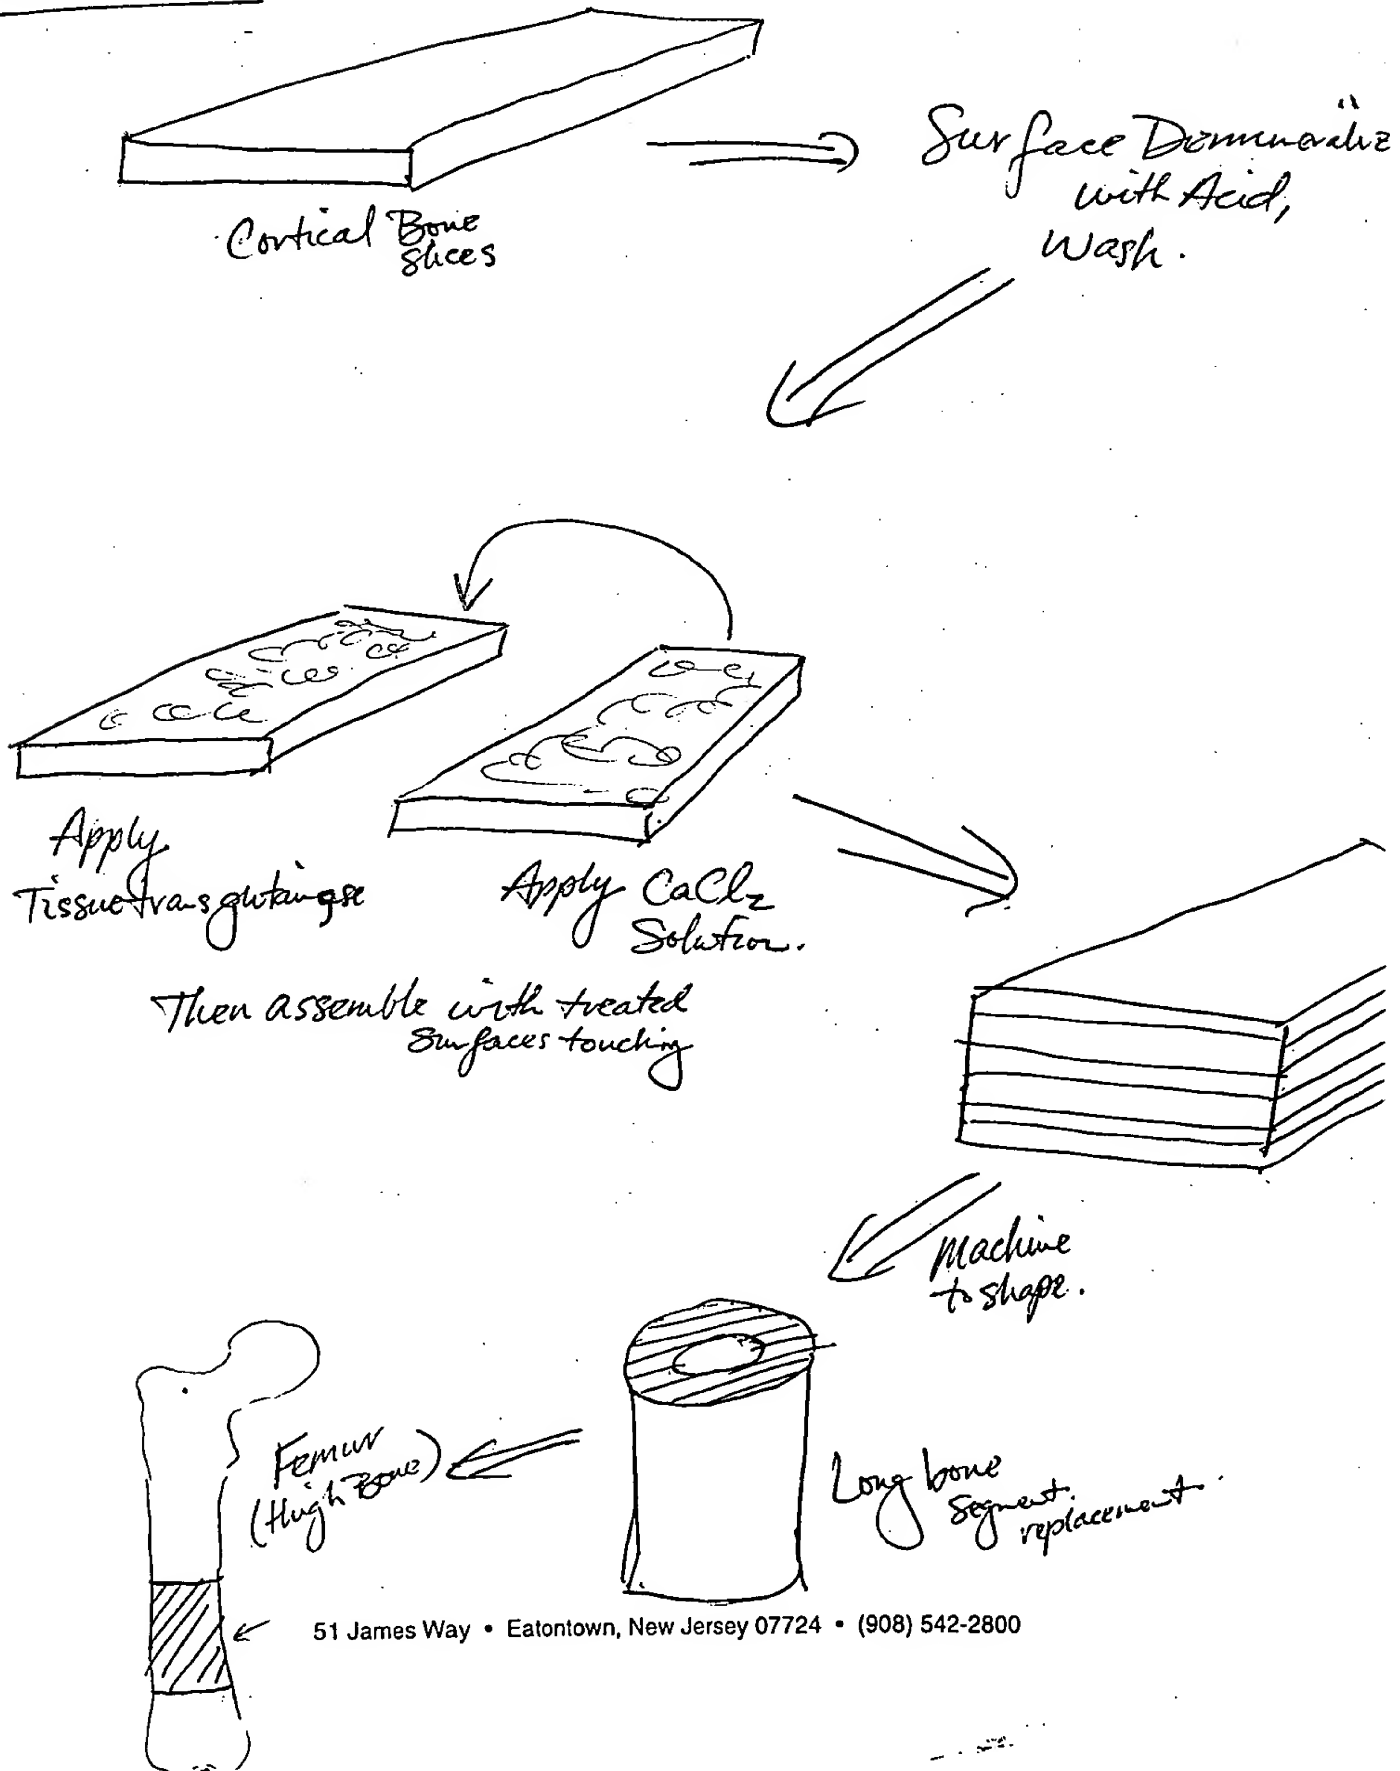 Cortical Bone
slices
Surface Demineralize
with Acid,
Wash.
Apply
Tissue transglutaminase
Apply CaCl2
Solution.
Then assemble with treated
Surfaces touching
Machine
to shape.
Femur
(Thigh Bone)
Long bone
segment
replacement.
51 James Way • Eatontown, New Jersey 07724 • (908) 542-2800